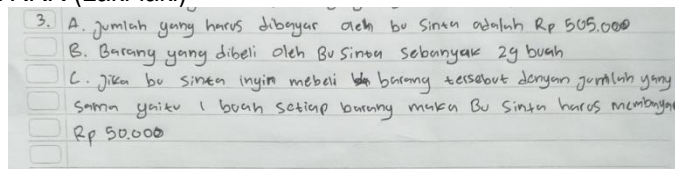 3. A. Jumlah yang harus dibayar oleh bu Sinta adalah Rp 505.000
B. Barang yang dibeli oleh Bu Sinta sebanyak 29 buah
C. Jika bu Sinta ingin mebeli barang tersebut dengan jumlah yang
sama yaitu 1 buah setiap barang maka Bu Sinta harus membayar
Rp 50.000